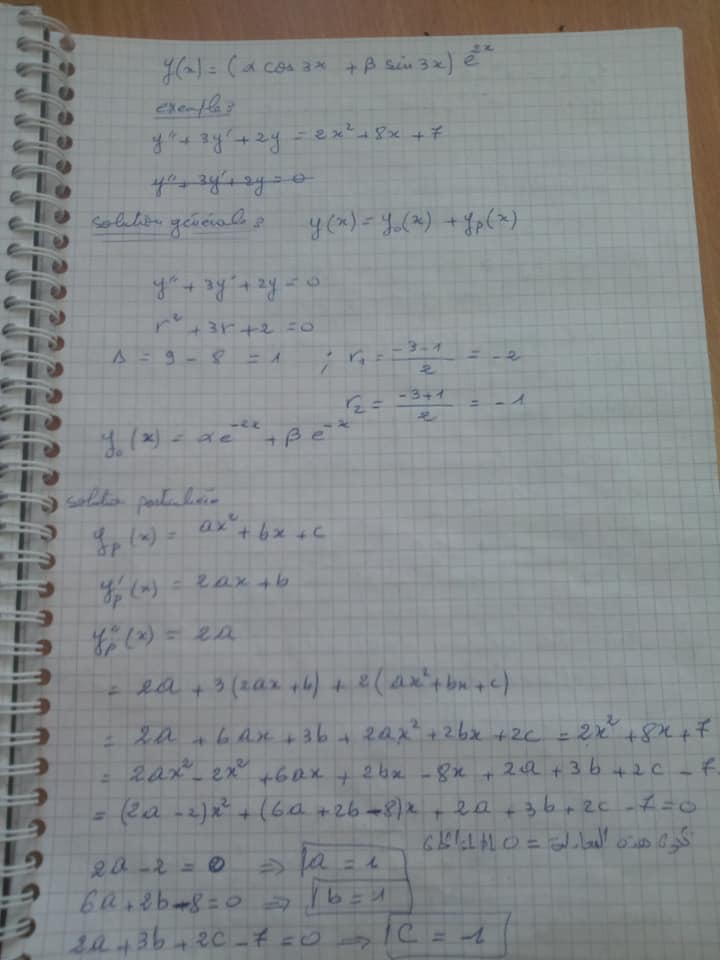 y(x) = (α cos 3x + β sin 3x) e^2x
exemple :
y'' + 3y' + 2y = 2x² + 8x + 7
y'' + 3y' + 2y = 0
solution générale : y(x) = y₀(x) + yp(x)
y'' + 3y' + 2y = 0
r² + 3r + 2 = 0
Δ = 9 - 8 = 1 ; r₁ = (-3-1)/2 = -2
r₂ = (-3+1)/2 = -1
y₀(x) = α e^-2x + β e^-x
solution particulière
yp(x) = ax² + bx + c
y'p(x) = 2ax + b
y''p(x) = 2a
= 2a + 3(2ax + b) + 2(ax² + bx + c)
= 2a + 6ax + 3b + 2ax² + 2bx + 2c = 2x² + 8x + 7
= 2ax² - 2x² + 6ax + 2bx - 8x + 2a + 3b + 2c - 7
= (2a - 2)x² + (6a + 2b - 8)x + 2a + 3b + 2c - 7 = 0
2a - 2 = 0 ⇒ a = 1
6a + 2b - 8 = 0 ⇒ b = 1
2a + 3b + 2c - 7 = 0 ⇒ c = -1